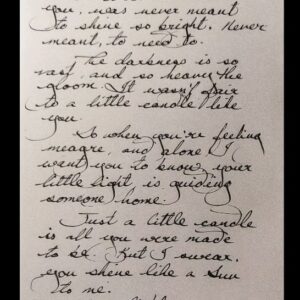 you, was never meant
to shine so bright. Never
meant, to need to.
The darkness is so
vast, and so heavy the
gloom. It wasn't fair
to a little candle like
you.
So when you're feeling
meagre, and alone I
want you to know, your
little light, is guiding
someone home.
Just a little candle
is all you were made
to be. But I swear,
you shine like a Sun
to me.